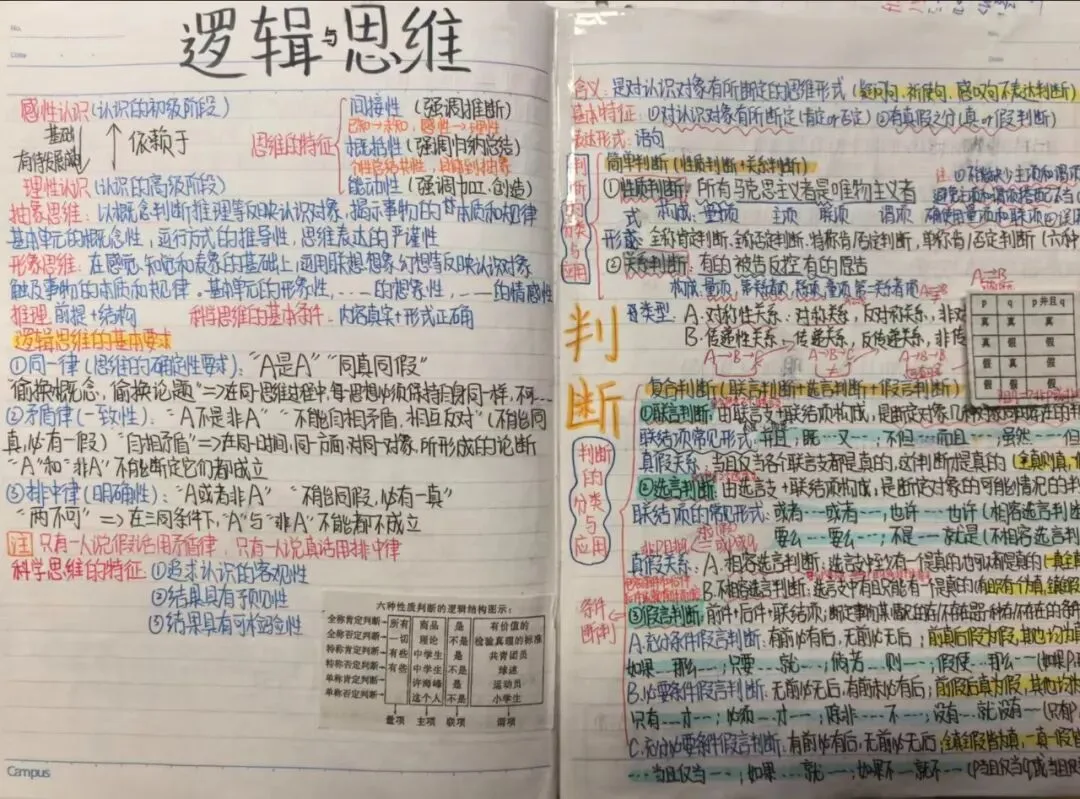 逻辑与思维
感性认识(认识的初级阶段)
基础
有待发展
依赖于
理性认识(认识的高级阶段)
思维的特征
间接性(强调推断)
已知→未知,感性→理性
概括性(强调归纳总结)
能动性(强调加工、创造)
抽象思维:以概念判断推理等反映认识对象,揭示事物的本质和规律
基本单元的概念性,运行方式的推导性,思维表达的严谨性
形象思维:在感觉、知觉和表象的基础上运用联想想象幻想等反映认识对象
触及事物的本质和规律。基本单元的形象性,……的想象性,……的情感性
推理:前提+结构 科学思维的基本条件:内容真实+形式正确
逻辑思维的基本要求
①同一律(思维的确定性要求):“A是A”“同真同假”
“偷换概念,偷换论题”=>在同一思维过程中,每一思想必须保持自身同一样,不可---
②矛盾律(一致性):“A不是非A”“不能自相矛盾,相互反对”(不能同
真,必有一假)“自相矛盾”=>在同一时间,同一方面,对同一对象,所形成的论断
“A”和“非A”不能断定它们都成立
③排中律(明确性):“A或者非A”“不能同假,必有一真”
“两不可”=>在三同条件下,“A”与“非A”不能都不成立
注 只有一人说假话用矛盾律,只有一人说真话用排中律
科学思维的特征:①追求认识的客观性
②结果具有预见性
③结果具有可检验性
六种性质判断的逻辑结构图示:
全称肯定判断 所有 商品 是 有价值的
全称否定判断 一切 理论 不是 检验真理的标准
特称肯定判断 有些 中学生 是 共青团员
特称否定判断 有些 中学生 不是 球迷
单称肯定判断 许海峰 是 运动员
单称否定判断 这个人 不是 小学生
量项 主项 联项 谓项
Campus
含义:是对认识对象有所断定的思维形式(疑问句、祈使句、感叹句不表达判断)
基本特征:①对认识对象有所断定(肯定or否定)②有真假之分(真or假判断)
表达形式:语句
判断
判断的分类与应用
简单判断(性质判断+关系判断)
①性质判断:所有马克思主义者是唯物主义者
构成:量项 主项 联项 谓项
形式:全称肯定判断、全称否定判断、特称肯/否定判断,单称肯/否定判断(六种
②关系判断:有的被告反控有的原告
类型:A.对称性关系:对称关系,反对称关系,非对
B.传递性关系:传递关系,反传递关系,非传
A→B→C
p q p并且q
真 真 真
真 假 假
假 真 假
假 假 假
判断的分类与应用
复合判断(联言判断+选言判断+假言判断)
①联言判断:由联言支+联结项构成,是断定对象几
联结项常见形式:并且;既---又---;不但---而且---;虽然---但
真假关系:当且仅当各个联言支都是真的,这个判断才是真的(全真则真,
②选言判断:由选言支+联结项构成,是断定对象的可能情况的判
联结项的常见形式:或者---或者---,也许---也许(相容选言判断
要么---要么---;不是---就是(不相容选言判断
真假关系:A.相容选言判断:选言支至少有一个是真的也可以都是真的(一真全真
B.不相容选言判断:选言支有且只能有一个是真的
条件断制
③假言判断:前件+后件+联结项,断定事物
A.充分条件假言判断:有前必有后,无前未必无后;前真后假为假,其他均为真
如果---那么---;只要---就---;倘若---则---;假使---那么---(如果p
B.必要条件假言判断:无前必无后,有前未必有后;前假后真为假,其他
只有---才---;必须---才---;除非---不---;没有---就没有---(只有p
C.充分必要条件假言判断:有前必有后,无前必无后;
---当且仅当---;如果---就---,如果不---就不---(p当且仅当q